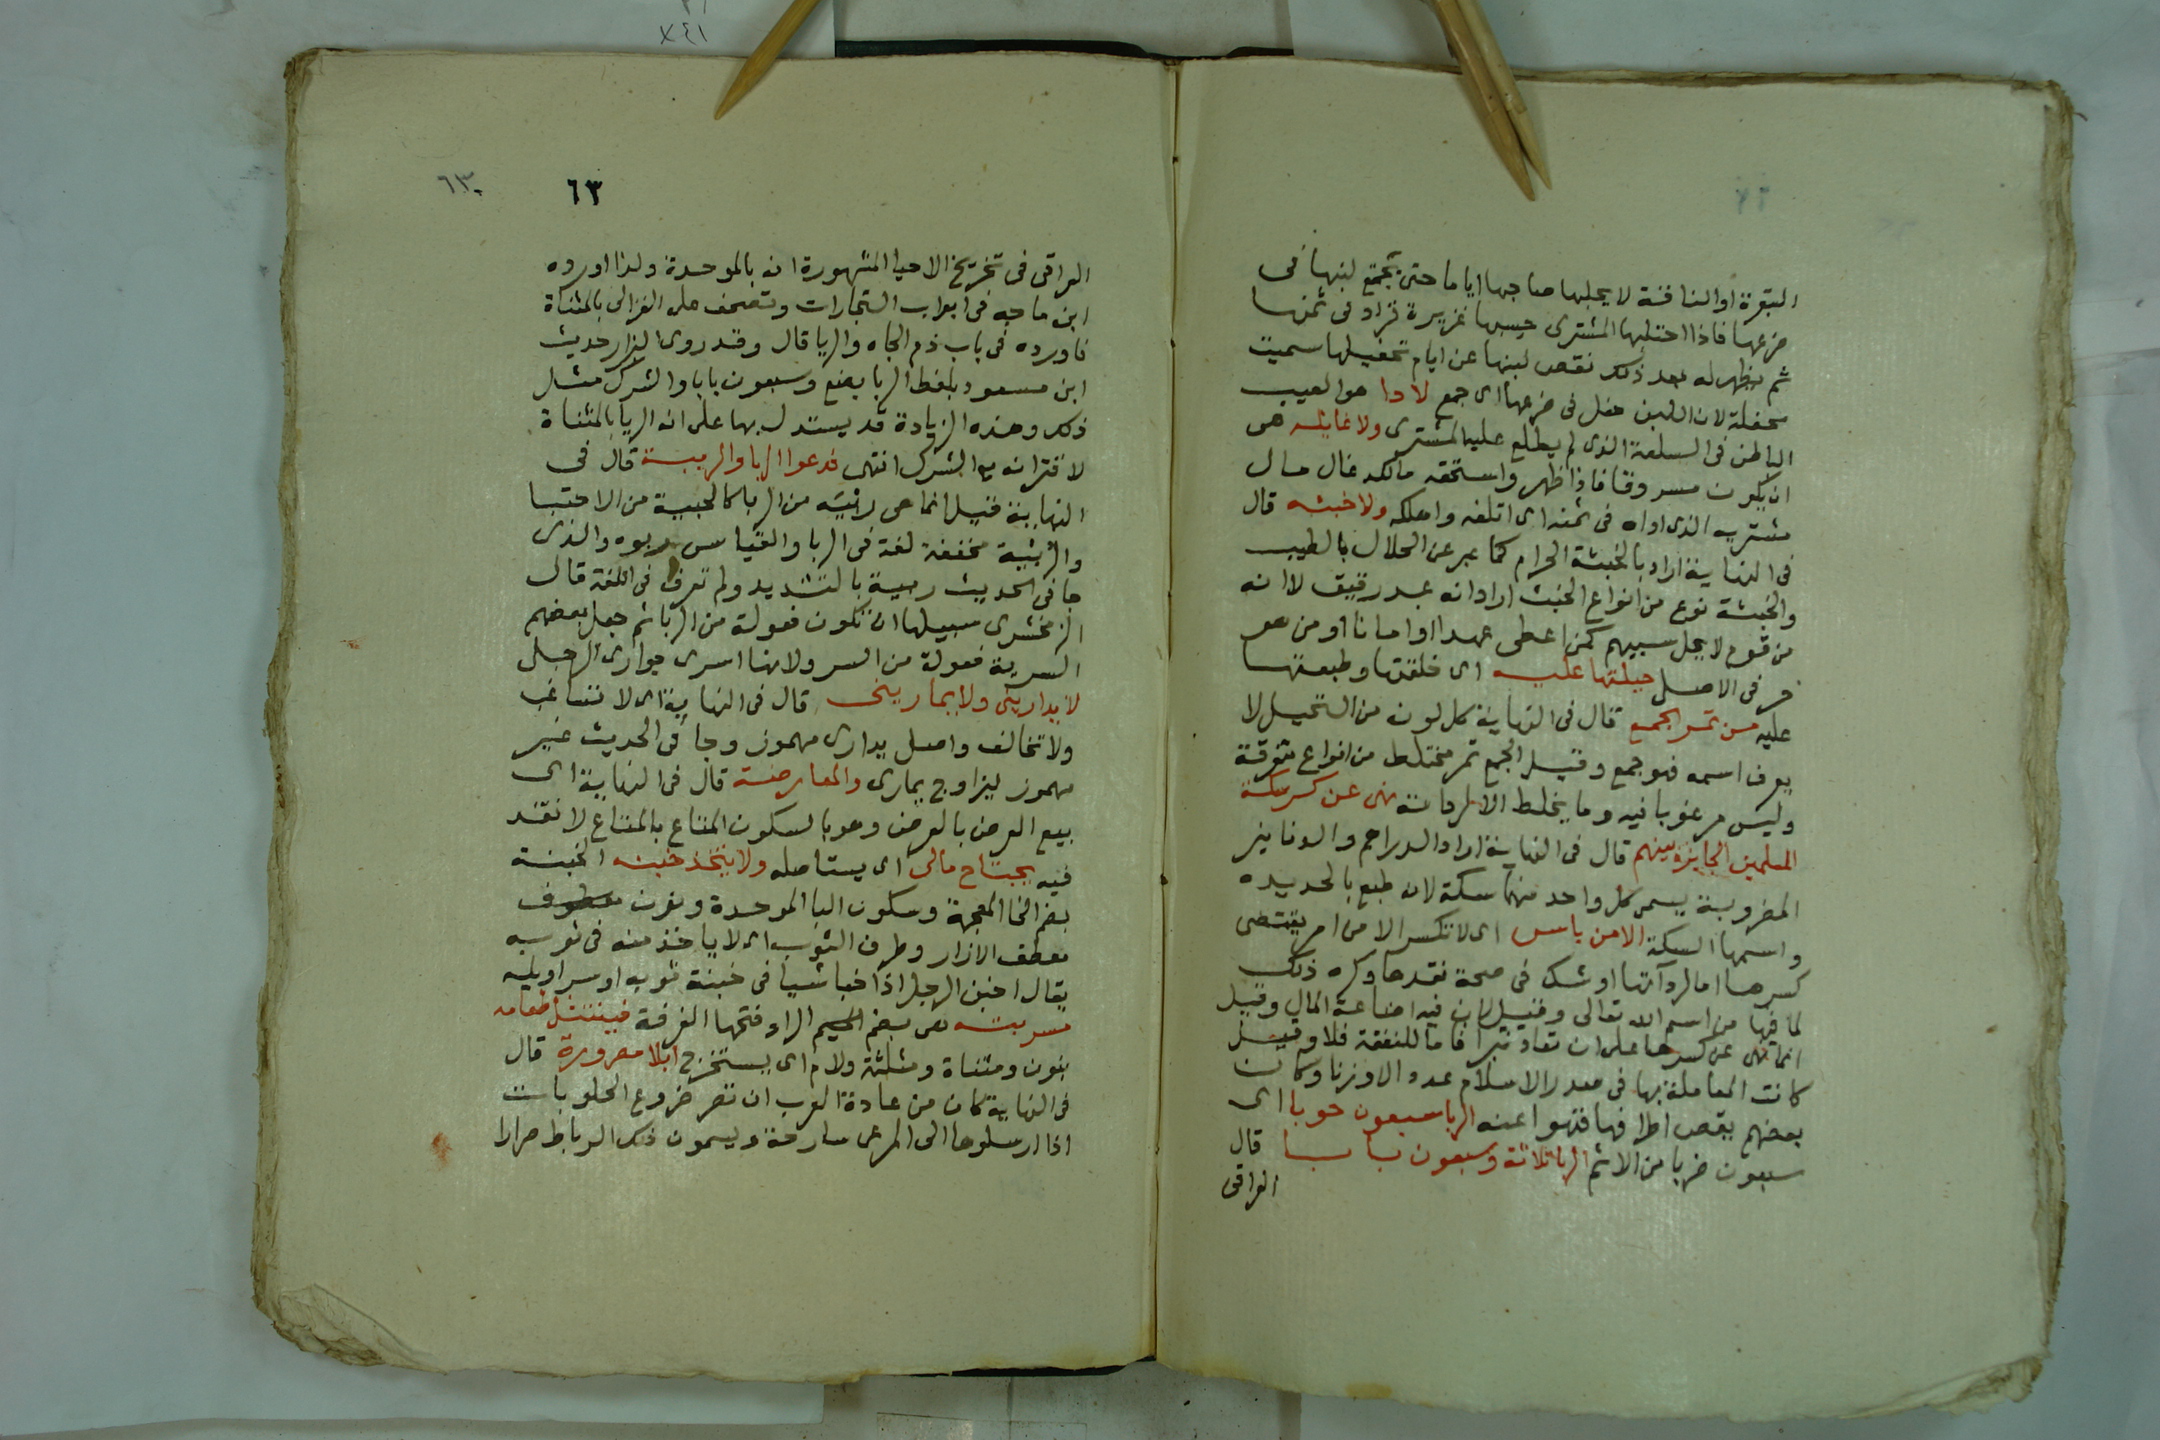 البقرة او الناقة لا يحلبها صاحبها اياما حتى يجتمع لبنها فى
ضرعها فاذا احتلبها المشترى حسبها غزيرة فزاد فى ثمنها
ثم يظهر له بعد ذلك نقص لبنها عن ايام تحفيلها سميت
محفلة لان اللبن حفل فى ضرعها اى جمع لا دا هو العيب
الباطن فى السلعة الذى لم يطلع عليه المشترى ولا غايلة هى
ان يكون مسروقا فاذا ظهر واستحقه مالكه غال مال
مشتريه الذى اداه فى ثمنه اى اتلفه واهلكه ولا خبثه قال
فى النهاية اراد بالخبثة الحرام كما عبر عن الحلال بالطيب
والخبثة نوع من انواع الخبث اراد انه عبد رقيق لا انه
من قوم لا يحل سبيهم كمن اعطى عهدا او امانا او من هو
حر فى الاصل جبلتها عليه اى خلقتها وطبعتها
عليه من تمر الجمع قال فى النهاية كل لون من النخيل لا
يعرف اسمه فهو جمع وقيل الجمع تمر مختلط من انواع متفرقة
وليس مرغوبا فيه وما يخلط الا لرداته نهى عن كسر سكة
المسلمين الجايزة بينهم قال فى النهاية اراد الدراهم والدنانير
المضروبة يسمى كل واحد منهما سكة لانه طبع بالحديده
واسمها السكة الا من باس اى لا تكسر الا من امر يقتضى
كسرها اما لردآتها او شك فى صحة نقدها وكره ذلك
لما فيها من اسم الله تعالى وقيل لان فيه اضاعة المال وقيل
انما نهى عن كسرها على ان تعاد تبرا فاما للنفقة فلا وقيل
كانت المعاملة بها فى صدر الاسلام عددا لا وزنا وكان
بعضهم يقص اطرافها فنهوا عنه الربا سبعون حوبا اى
سبعون ضربا من الاثم الربا ثلاثة وسبعون بابا قال
العراقى
٦٣
٦٣
العراقى فى تخريج الاحيا المشهورة انه بالموحدة ولذا اورده
ابن ماجه فى ابواب التجارات وتصحف على الغزالى بالمثناة
فاورده فى باب ذم الجاه والريا قال وقد روى البزار حديث
ابن مسعود بلفظ الربا بضع وسبعون بابا والشرك مثل
ذلك وهذه الزيادة قد يستدل بها على انه الريا بالمثناة
لاقترانه مع الشرك انتهى فدعوا الربا والريبة قال فى
النهاية قيل انما هى ربية من الربا كالحبية من الاحتبا
والربية مخففة لغة فى الربا والقياس ربوه والذى
جا فى الحديث ربية بالتشديد ولم تعرف فى اللغة قال
الزمخشرى سبيلها ان تكون فعولة من الربا ثم جعل بعضهم
السرية فعولة من السر ولانها اسرى جوارى الرجل
لا يدارينى ولا يمارينى قال فى النهاية اى لا تشاغب
ولا تخالف واصل يدارى مهموز وجا فى الحديث غير
مهموز ليزاوج يمارى والمعارضة قال فى النهاية اى
بيع العرض بالعرض وهو بالسكون المتاع بالمتاع لا نقد
فيه يجتاح مالى اى يستاصله ولا يتخذ خبنه الخبنة
بضم الخا المعجمة وسكون البا الموحدة ونون معطوف
معطف الازار وطرف الثوب اى لا ياخذ منه فى ثوبه
يقال اخبن الرجل اذا خبا شيا فى خبنة ثوبه او سراويله
مسربته هى بضم الراء وفتحها الغرفة فينتثل طعامه
بنون ومثناة ومثلثة ولام اى يستخرج ابلا مصرورة قال
فى النهاية كان من عادة العرب ان تصر ضروع الحلوبات
اذا ارسلوها الى المرعى سارحة ويسمون ذلك الرباط صرارا